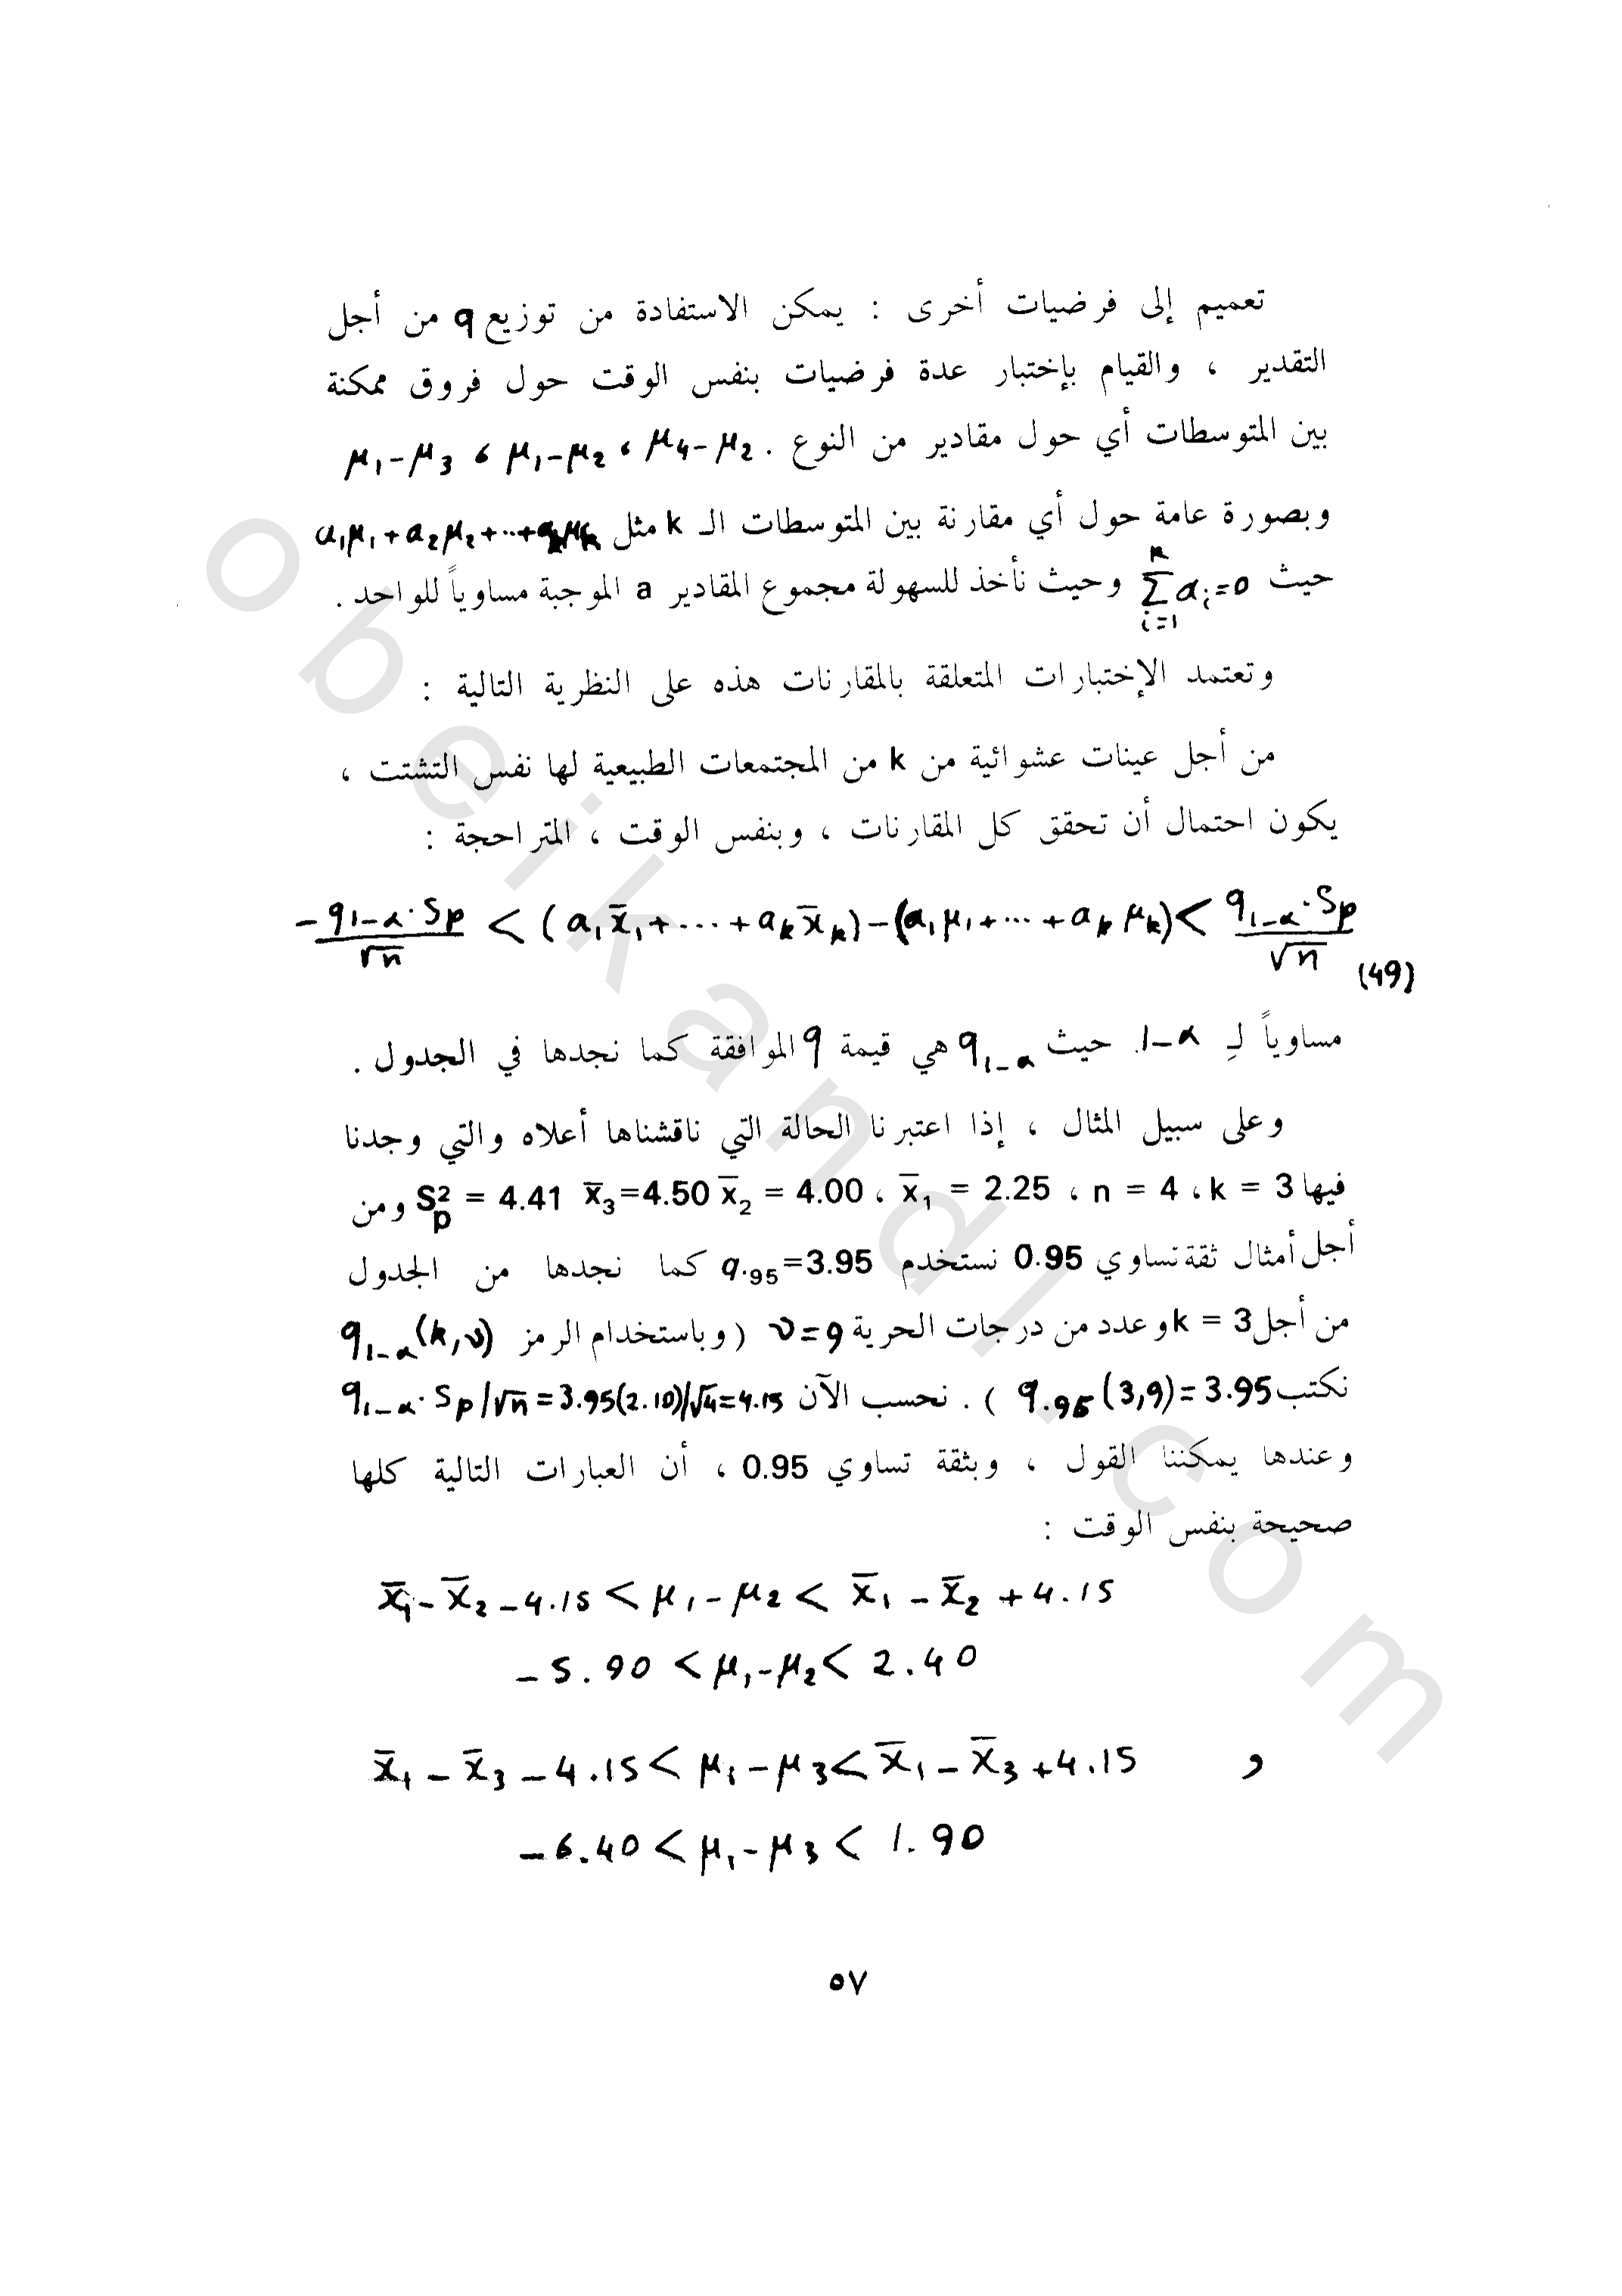 تعميم إلى فرضيات أخرى : يمكن الاستفادة من توزيع q من أجل
التقدير ، والقيام بإختبار عدة فرضيات بنفس الوقت حول فروق ممكنة
بين المتوسطات أي حول مقادير من النوع . μ₄-μ₂ ، μ₁-μ₂ ، μ₁-μ₃
وبصورة عامة حول أي مقارنة بين المتوسطات الـ k مثل a₁μ₁+a₂μ₂+...+aₖμₖ
حيث \sum_{i=1}^{k} aᵢ=0 وحيث نأخذ للسهولة مجموع المقادير a الموجبة مساوياً للواحد .
وتعتمد الإختبارات المتعلقة بالمقارنات هذه على النظرية التالية :
من أجل عينات عشوائية من k من المجتمعات الطبيعية لها نفس التشتت ،
يكون احتمال أن تحقق كل المقارنات ، وبنفس الوقت ، المتراجحة :
\frac{-q_{1-α}·S_p}{\sqrt{n}} < (a₁x̄₁+...+aₖx̄ₖ)-(a₁μ₁+...+aₖμₖ) < \frac{q_{1-α}·S_p}{\sqrt{n}}
(49)
مساوياً لـِ 1-α. حيث q_{1-α} هي قيمة q الموافقة كما نجدها في الجدول .
وعلى سبيل المثال ، إذا اعتبرنا الحالة التي ناقشناها أعلاه والتي وجدنا
فيها k = 3 ، n = 4 ، x̄₁ = 2.25 ، x̄₂ = 4.00 x̄₃=4.50 S_p² = 4.41 ومن
أجل أمثال ثقة تساوي 0.95 نستخدم q.₉₅=3.95 كما نجدها من الجدول
من أجل k = 3 وعدد من درجات الحرية ν=9 (وباستخدام الرمز q_{1-α}(k,ν)
نكتب q.₉₅(3,9)=3.95 ) . نحسب الآن q_{1-α}·S_p/√n=3.95(2.10)/√4=4.15
وعندها يمكننا القول ، وبثقة تساوي 0.95 ، أن العبارات التالية كلها
صحيحة بنفس الوقت :
x̄₁-x̄₂-4.15 < μ₁-μ₂ < x̄₁-x̄₂+4.15
-5.90 < μ₁-μ₂ < 2.40
و x̄₁-x̄₃-4.15 < μ₁-μ₃ < x̄₁-x̄₃+4.15
-6.40 < μ₁-μ₃ < 1.90
٥٧
obeikandl.com